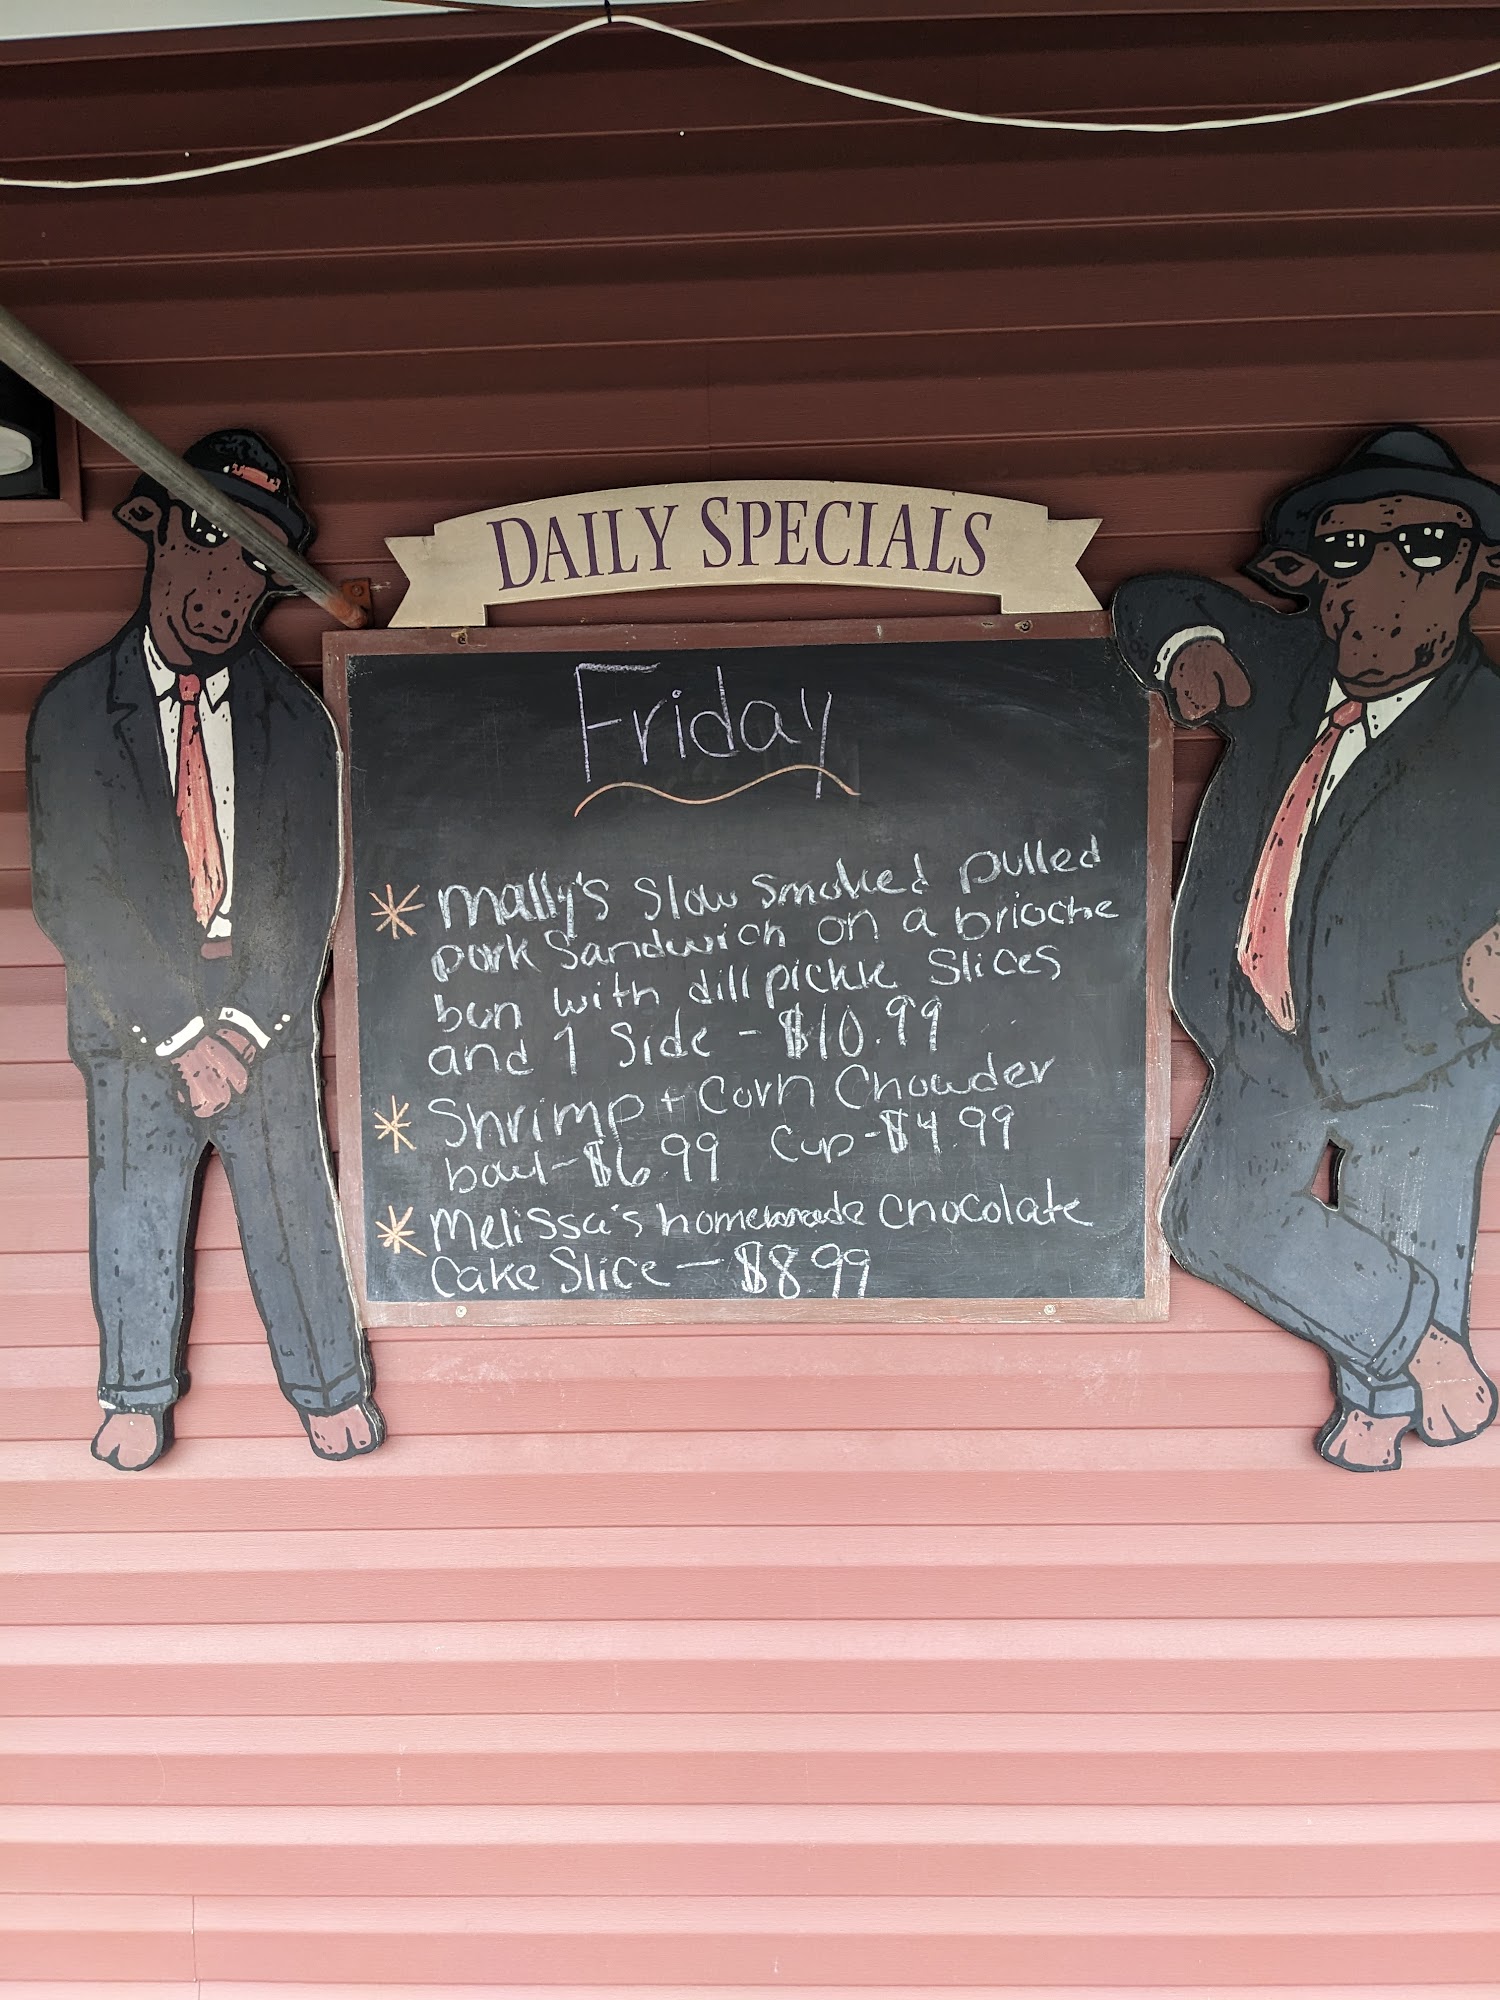 DAILY SPECIALS
Friday
* Mally's Slow Smoked pulled
pork Sandwich on a brioche
bun with dill pickle Slices
and 1 Side - $10.99
* Shrimp + Corn Chowder
bowl - $6.99 Cup - $4.99
* Melissa's homemade Chocolate
Cake Slice - $8.99